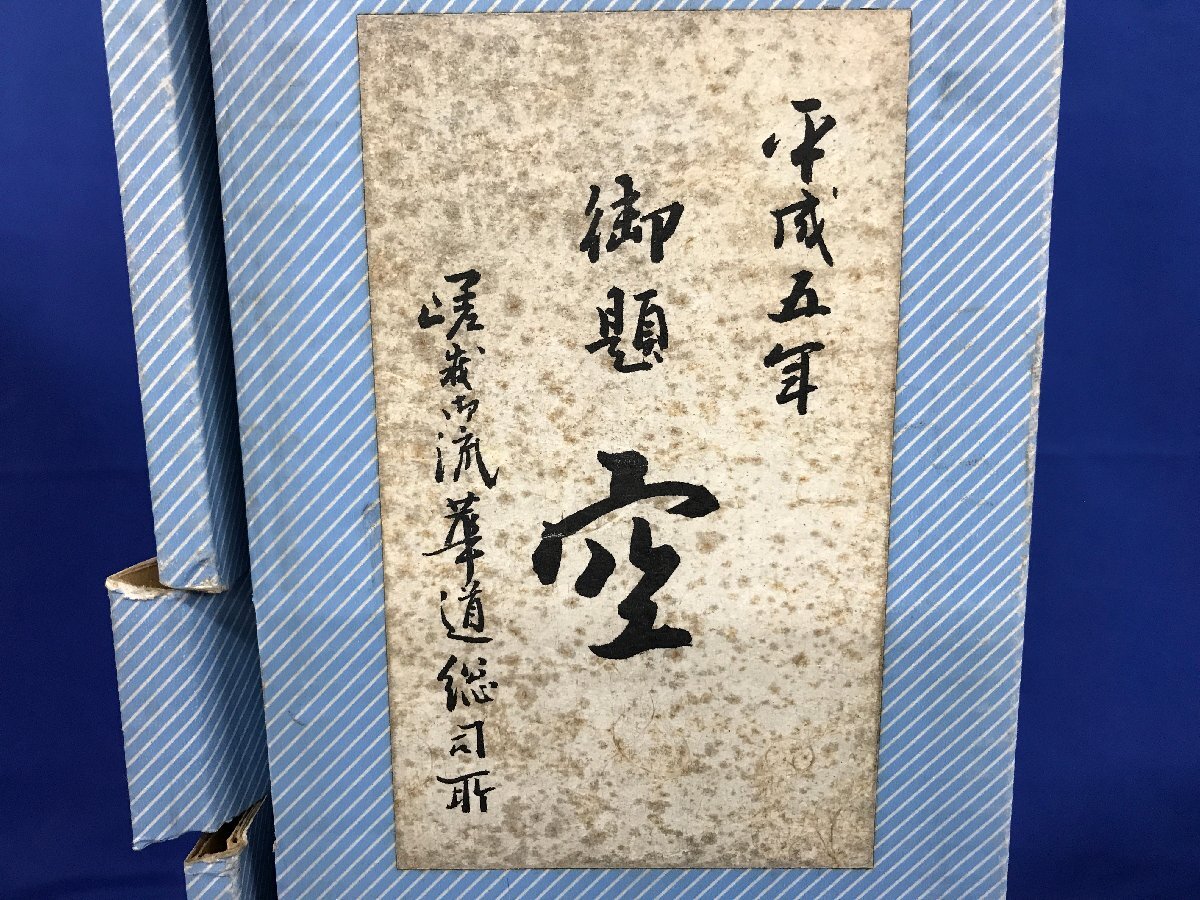 平成五年
御題 空
嵯峨御流華道総司所